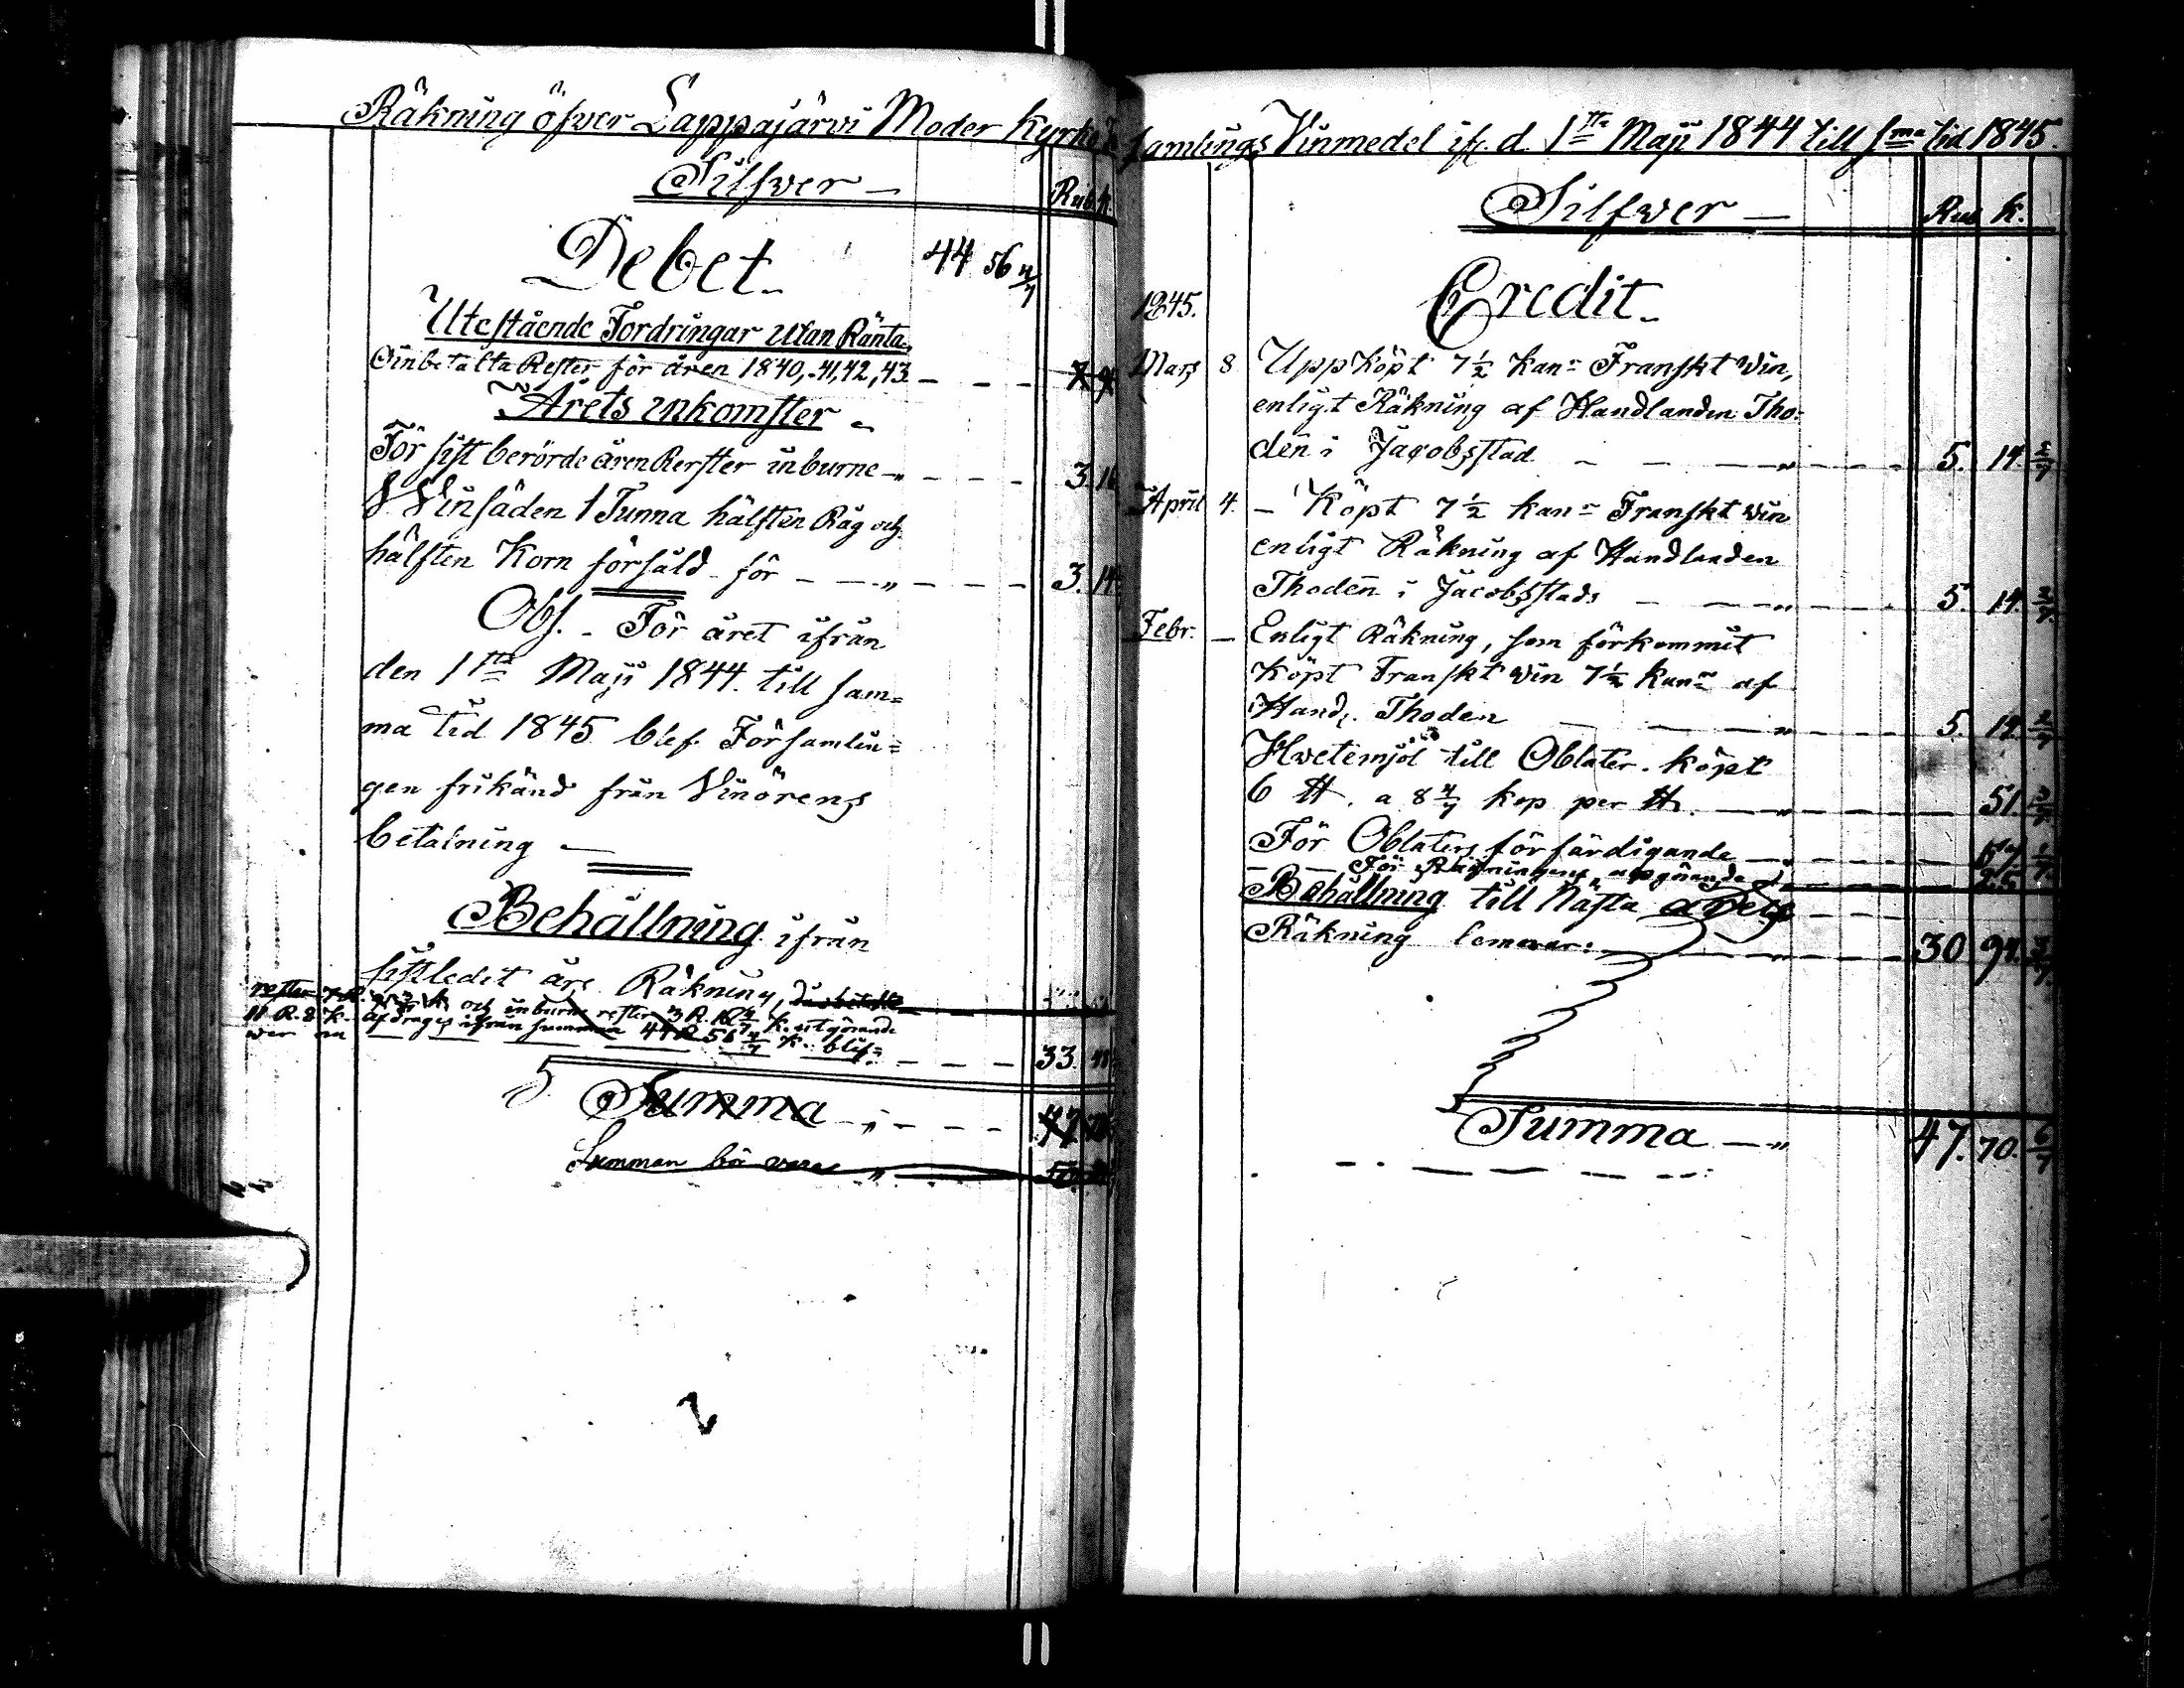 Räkning öfver Lappajärvi Moder Kyrko F
Silfver —
Rub. k.
Debet. 44 56 4/7
Utestående Fordringar utan Ränta,
Oinbetalta Rester för åren 1840, 41, 42, 43. — — —
Årets inkomster
För sist berörde åren Rerster inburne — — — 3. 16
Vinsäden 1 Tunna hälften Råg och
hälften Korn försåld för — — — 3. 14
Obs. — För året ifrån
den 1sta Maji 1844. till sam=
ma tid 1845 blef Församlin=
gen frikänd från Vinörens
betalning —
Behållning ifrån
sistledit års Räkning,
rester 7 R. k och inburne rester 3 R. 16 4/7 k. utgörande
11 R. 8 k. afdrages ifrån summan 44 R 56 4/7 k. blif=
ver — — — 33. 48
Summa — — —
Summan bör vara
2
samlings Vinmedel if. d. 1sta Maji 1844 till sma tid 1845.
Silfver —
Rub k.
Credit.
1845.
Mars 8 Uppköpt 7 1/2 kanr Franskt Vin,
enligt Räkning af Handlanden Tho=
den i Jacobsstad — — — 5. 14. 2/7
April 4. — Köpt 7 1/2 kanr Franskt Vin
enligt Räkning af Handlanden
Thoden i Jacobsstads — — — 5. 14. 2/7.
Febr. — Enligt Räkning, som förkommit
köpt Franskt Vin 7 1/2 kanr af
Handl. Thoden — — — 5. 14. 2/7
Hvetemjöl till Oblater köpt
6 ℔. a 8 4/7 kop per ℔. — — 51. 3/7
För Oblaters förfärdigande — — 57. 1/7.
— — För Räkningens uppgörande — 25
Behållning till Nästa årets
Räkning lemnar: — — 30 94. 3/7.
Summa — 47. 70. 6/7